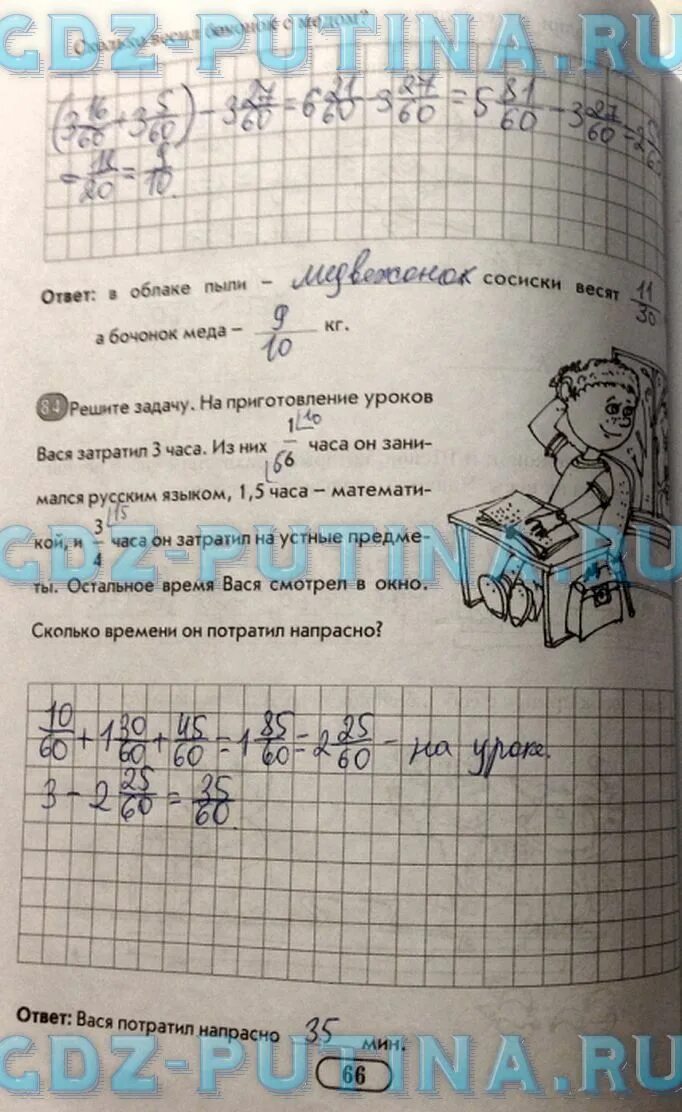 GDZ-PUTINA.RU
Сколько весил бочонок с медом?
(3 16/60 + 3 5/60) - 3 27/60 = 6 21/60 - 3 27/60 = 5 81/60 - 3 27/60 =
= 18/20 = 9/10.
Ответ: в облаке пыли – медвежонок сосиски весят 11/30
а бочонок меда – 9/10 кг.
84 Решите задачу. На приготовление уроков
Вася затратил 3 часа. Из них 1/6 часа он зани-
мался русским языком, 1,5 часа – математи-
кой, и 3/4 часа он затратил на устные предме-
GDZ-PUTINA.RU
ты. Остальное время Вася смотрел в окно.
Сколько времени он потратил напрасно?
10/60 + 1 30/60 + 45/60 = 1 85/60 = 2 25/60 - на уроке.
3 - 2 25/60 = 35/60.
Ответ: Вася потратил напрасно 35 мин.
GDZ-PUTINA.RU
66